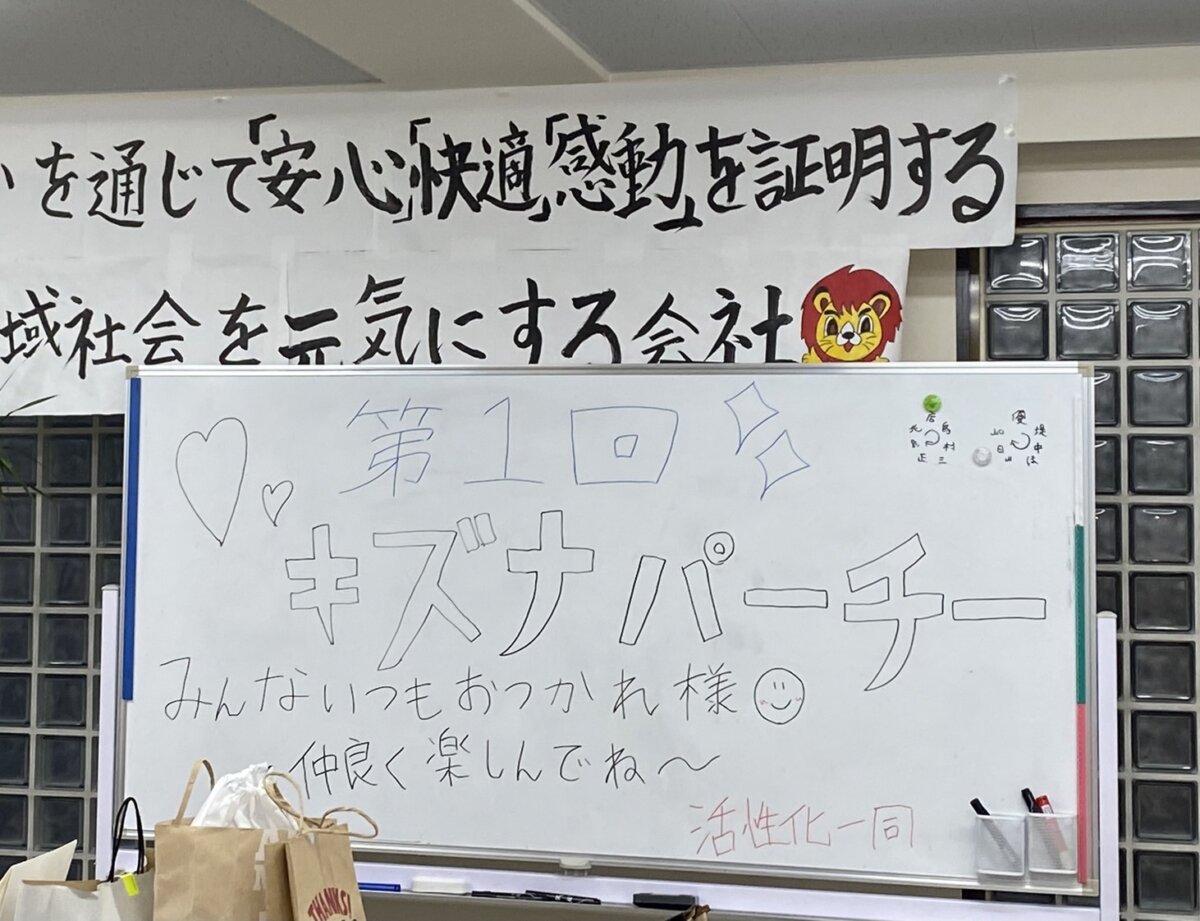 を通じて「安心」「快適」「感動」を証明する
域社会を元気にする会社
第1回
キズナパーチー
みんないつもおつかれ様
仲良く楽しんでね〜
活性化一同
THANKS!